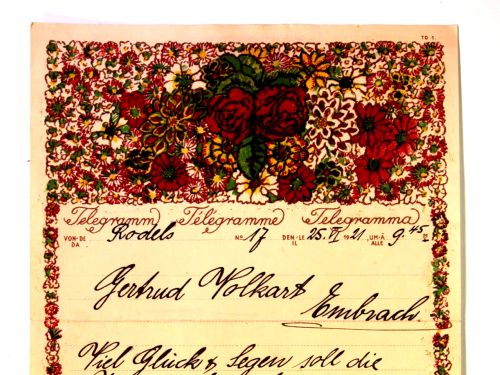 TD 1.
Telegramm Télégramme Telegramma
VON-DE DA Rodels No 17 DEN-LE IL 25. VI 1921 UM-À ALLE 9.45
Gertrud Volkart
Embrach.
Viel Glück & Segen soll die